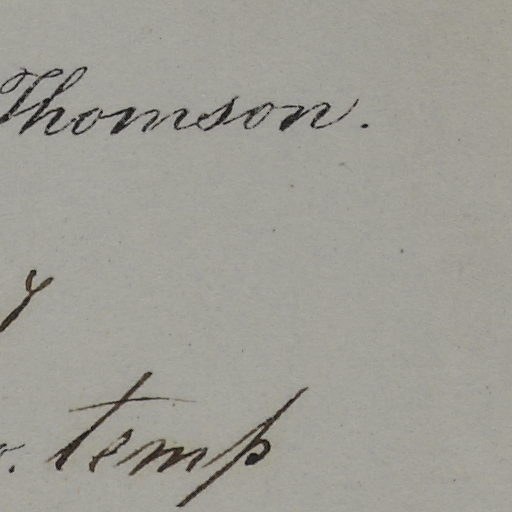 Thomson.
y
. temp